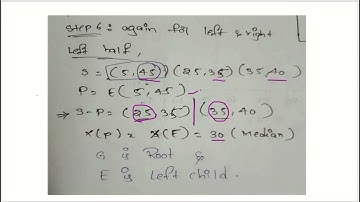 Step 6: again for left & right
Left half,
S = (5, 45) (25, 35) (35, 40)
P = E (5, 45)
→ S-P = (25 35) | (35, 40)
X(P) = X(E) = 30 (Median)
G is Root &
E is Left child.